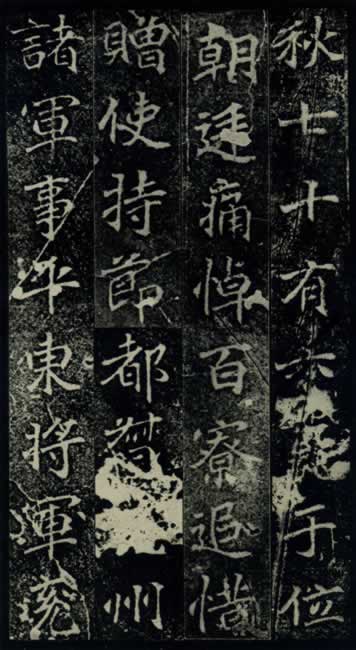 秋七十有六于位
朝廷痛悼百寮追惜
贈使持節都督州
諸軍事平東將軍兗